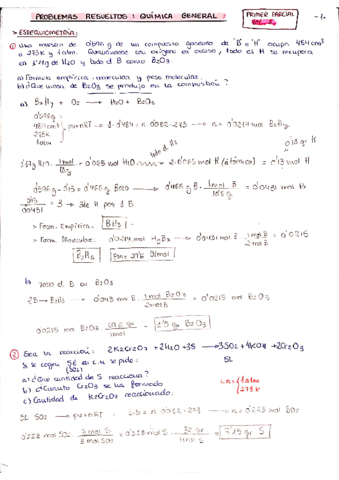 PROBLEMAS RESUELTOS: QUÍMICA GENERAL
PRIMER PARCIAL
-1-
> ESTEQUIOMETRÍA:
① Una muestra de 0'596 g de un compuesto gaseoso de B e H ocupa 484 cm³
a 273K y 1 atm. Quemándose con oxígeno en exceso, todo el H se recupera
en 1'17g H2O y todo el B como B2O3.
a) Formula empírica, molecular y peso molecular.
b) ¿Que masa de B2O3 se produjo en la combustión?
a) BxHy + O2 → H2O + B2O3
0'596g
484cm³
273K
1atm
→ pv=nRT → 1·0'484 = n·0'082·273 → n = 0'0214 mol BxHy
0'13 g H
1'17g H2O · 1mol/18g = 0'065 mol H2O
todo el H2
→ 2·0'065 mol H (atómico) = 0'13 mol H
0'596g - 0'13 = 0'466g Boro → 0'466g B · 1mol B = 0'0431 mol B
0'13/0'0431 → 3 de H por 1 B
> Form. Empírica: BH3
> Form. Molecular: 0'0214 mol HyBx → 0'0431 mol B · 1 mol/2 mol B = 0'0215
B2H6
b)
2B → B2O3 → 0'043 mol B · 1 mol B2O3/2 mol B
0'0215 mol B2O3 = 1'5 gr B2O3
② Sea la reacción: 2K2Cr2O7 + 2H2O + 3S → 3SO2 + 4KOH + 2Cr2O3
5L
Si se cogen 5L en c.n se pide:
(SO2)
a) ¿Que cantidad de S reacciona?
b) ¿Cuanto Cr2O3 se ha formado
c) Cantidad de K2Cr2O7 reaccionado.
c.n: 1atm
273K
5L SO2 → pv=nRT → 1·5 = n·0'082·273 → n = 0'223 mol SO2
0'223 mol SO2 · 3 mol S/3 mol SO2 = 7'15 gr S